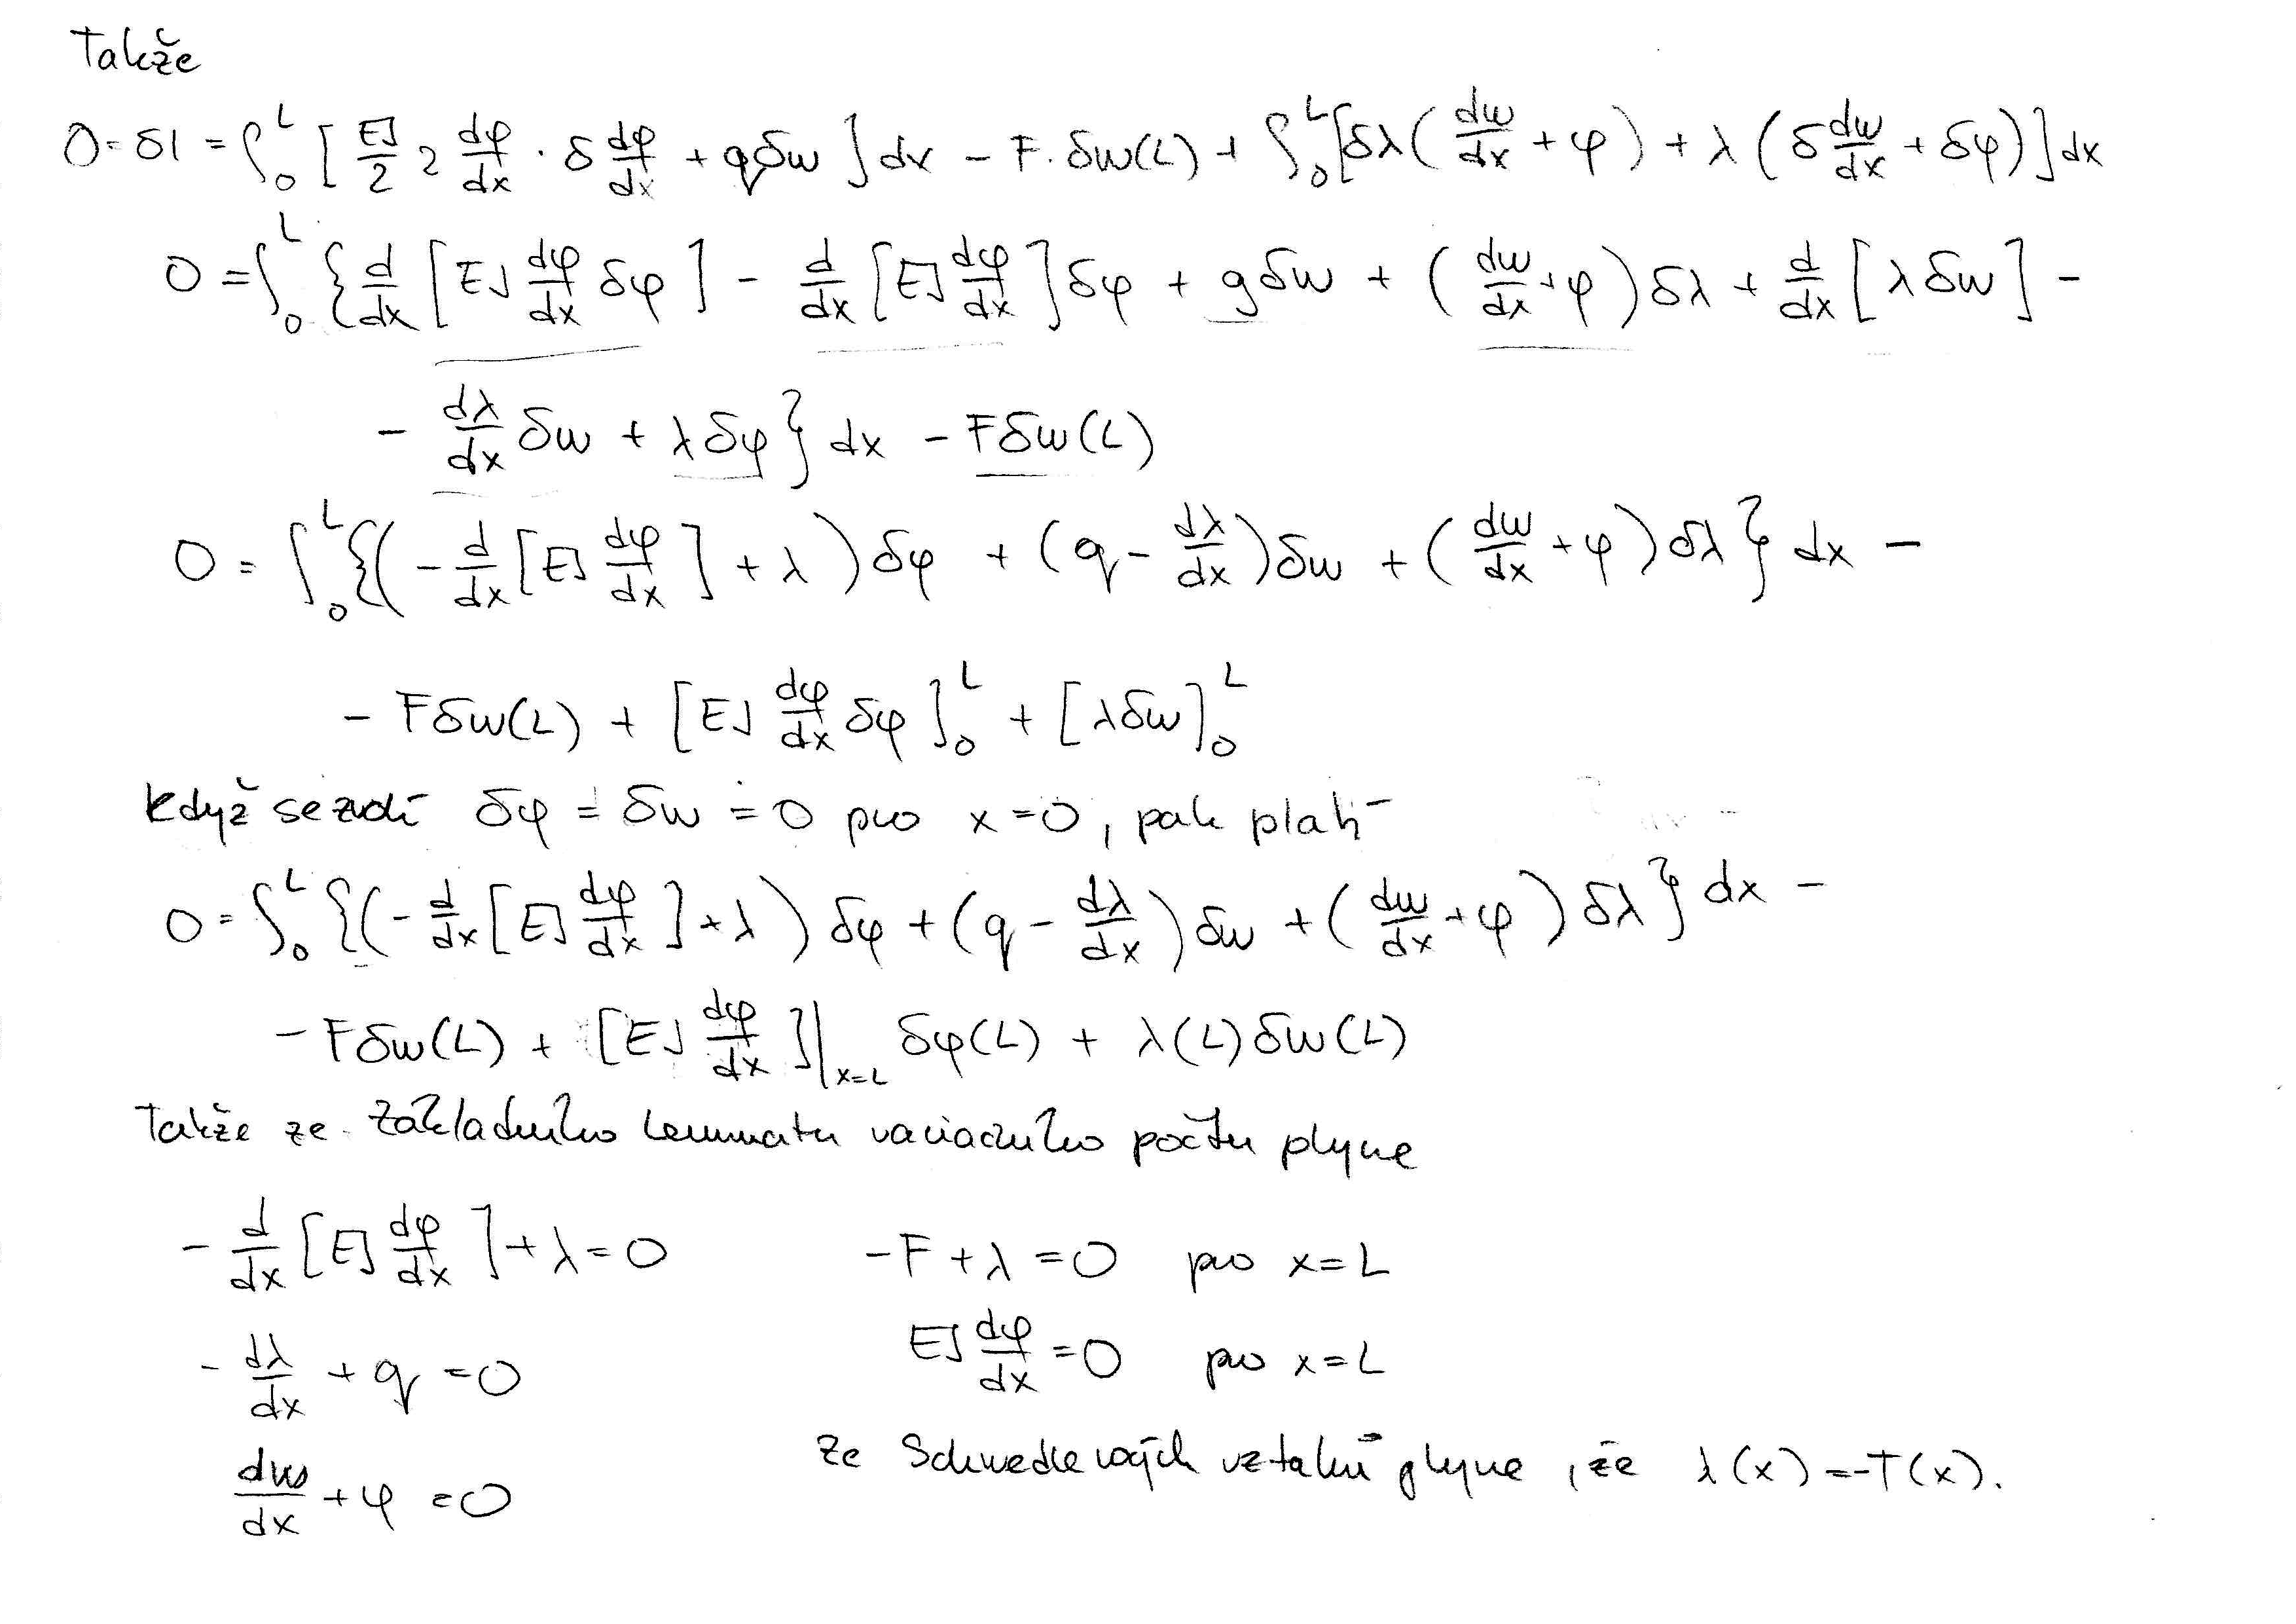 Takže
0 = δI = ∫₀ᴸ [ EJ/2 2 dφ/dx · δ dφ/dx + qδw ] dx - F·δw(L) + ∫₀ᴸ [δλ( dw/dx + φ ) + λ ( δ dw/dx + δφ)] dx
0 = ∫₀ᴸ { d/dx [ EJ dφ/dx δφ ] - d/dx [ EJ dφ/dx ] δφ + qδw + ( dw/dx + φ ) δλ + d/dx [ λ δw ] -
- dλ/dx δw + λδφ } dx - Fδw(L)
0 = ∫₀ᴸ {( - d/dx [ EJ dφ/dx ] + λ ) δφ + ( q - dλ/dx ) δw + ( dw/dx + φ ) δλ } dx -
- Fδw(L) + [ EJ dφ/dx δφ ]₀ᴸ + [ λδw ]₀ᴸ
Když se zvolí δφ = δw = 0 pro x = 0, pak platí
0 = ∫₀ᴸ {( - d/dx [ EJ dφ/dx ] + λ ) δφ + ( q - dλ/dx ) δw + ( dw/dx + φ ) δλ } dx -
- Fδw(L) + [ EJ dφ/dx ]|x=L δφ(L) + λ(L) δw(L)
Takže ze základního lemmatu variačního počtu plyne
- d/dx [ EJ dφ/dx ] + λ = 0 -F + λ = 0 pro x = L
- dλ/dx + q = 0 EJ dφ/dx = 0 pro x = L
dw/dx + φ = 0 ze Schwedlerových vztahů plyne, že λ(x) = -T(x).